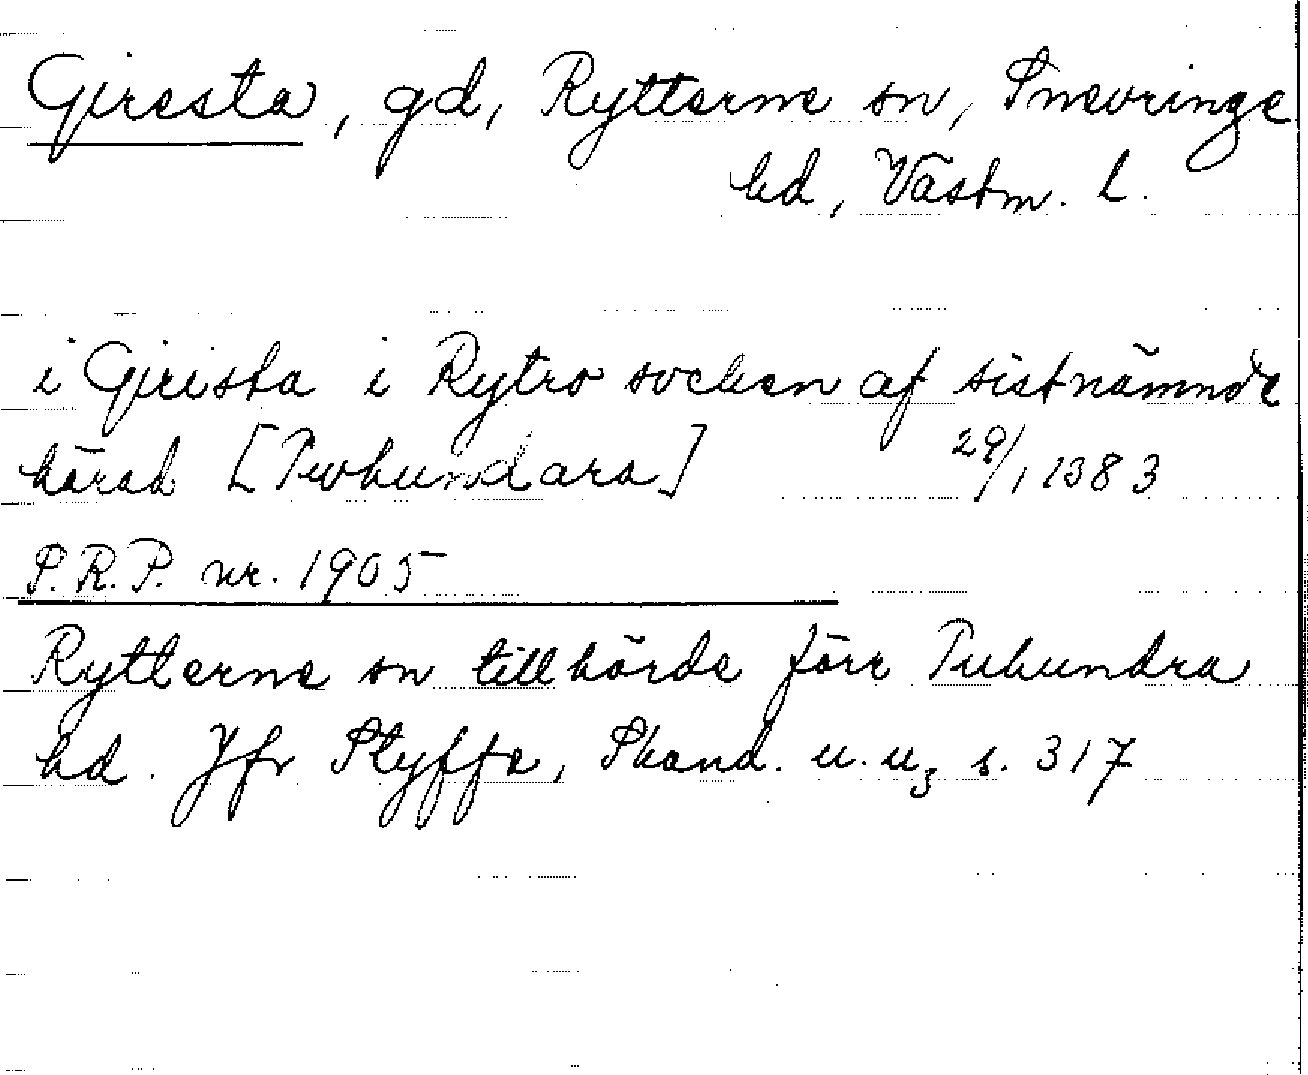 Giresta, gd, Rytterne sn, Snevringe
hd, Västm. L.
i Girista i Rytro socken af sistnämnde
härad [Twhundara] 29/1 1383
S.R.P. nr. 1905
Rytterne sn tillhörde förr Tuhundra
hd. Jfr Styffe, Skand. u. u3 s. 317